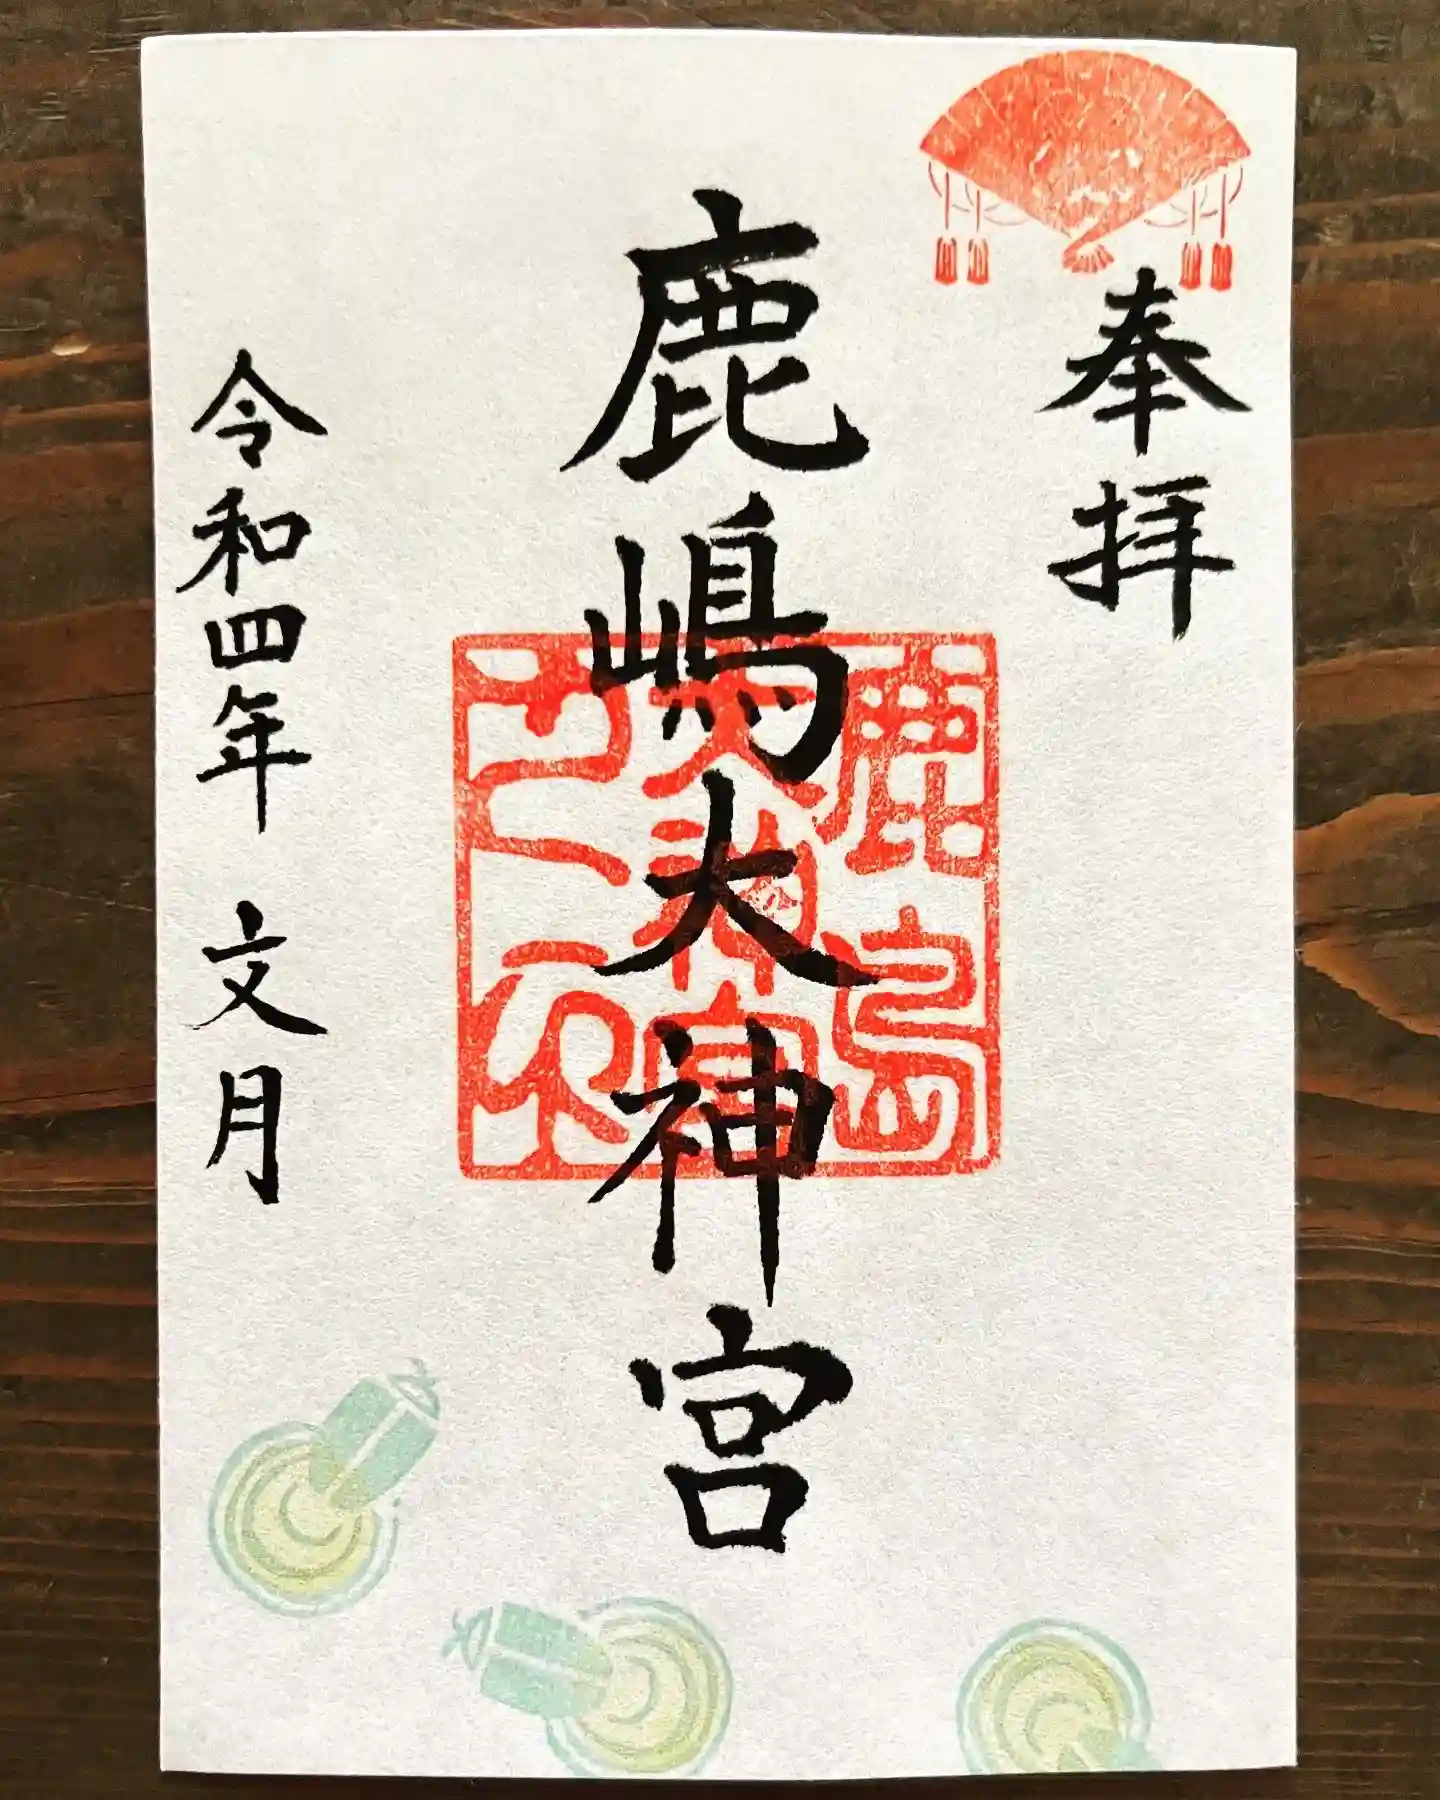 奉拝
鹿嶋大神宮
鹿島
大神宮
令和四年 文月